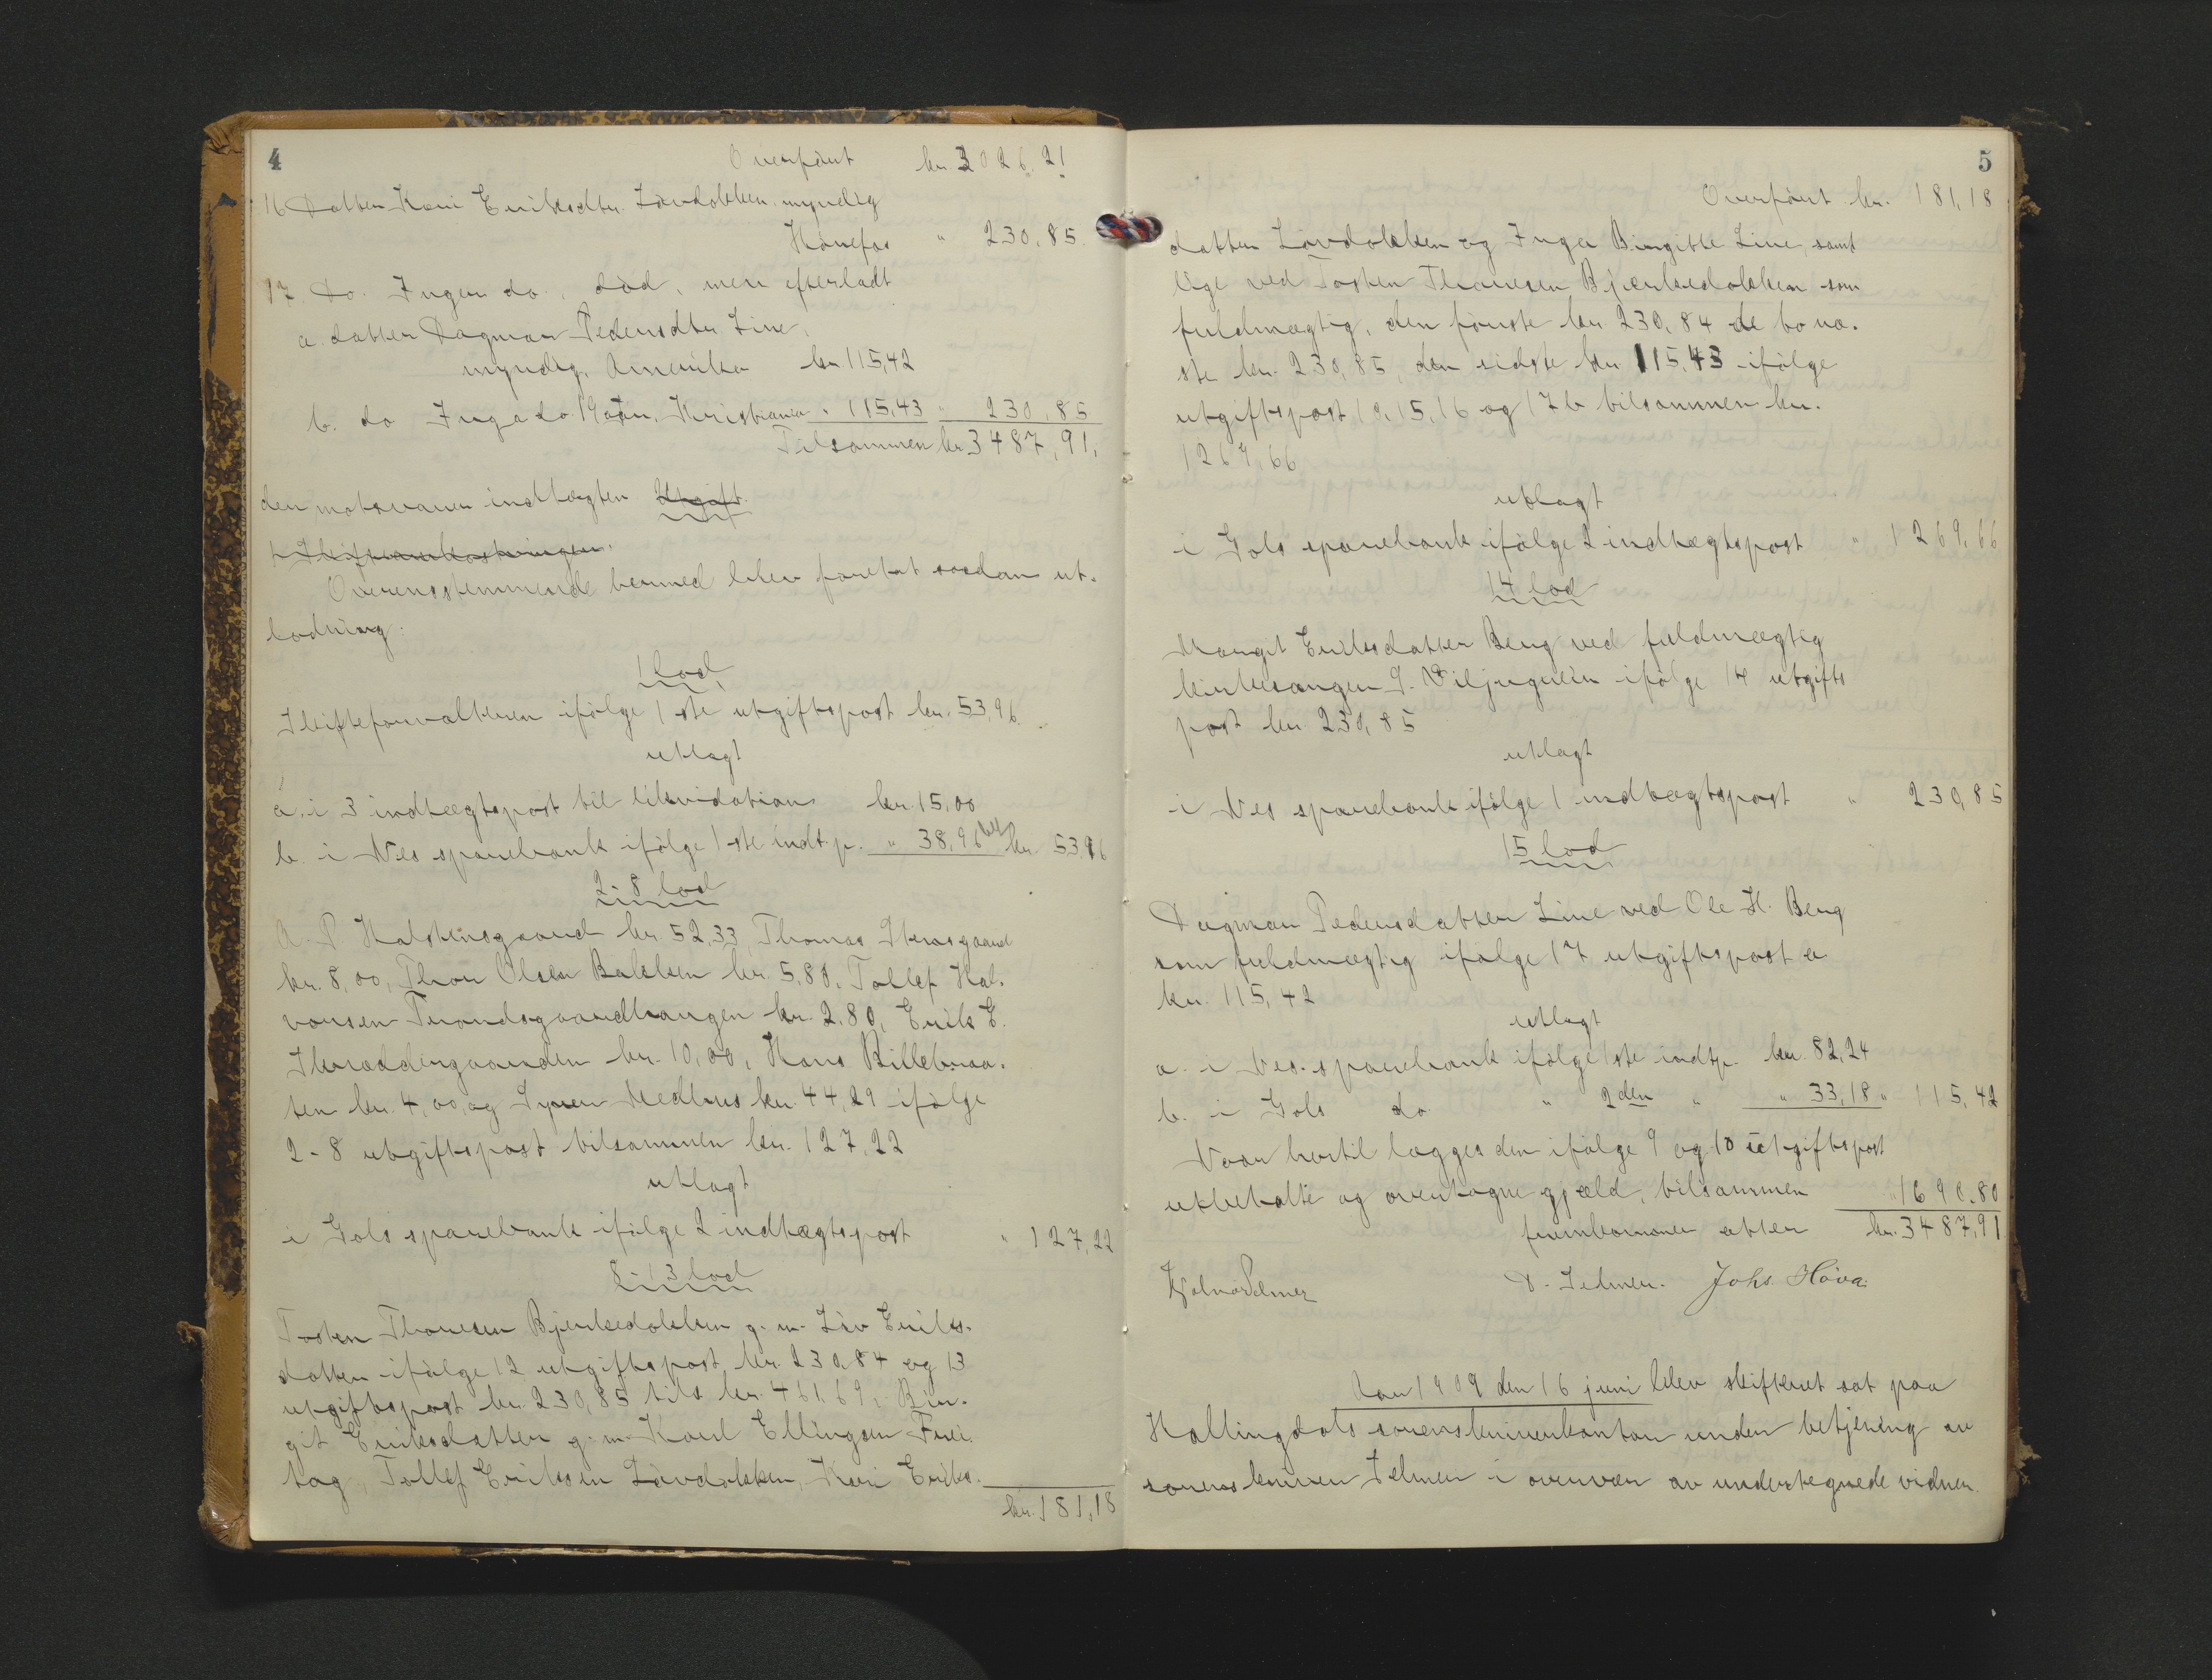 4
Overført kr. 3026.21
16 Datter Kari Eriksdtr. Løvdokken, myndig
Hönefos " 230,85
17. Do. Inger do, død, men efterladt
a. datter Dagmar Pedersdtr. Line,
myndig, Amerika kr 115,42
b. do Inga do 19 aar, Kristiania " 115,43 " 230,85
Tilsammen kr. 3487,91,
den motsvarer indtægten Utgift.
Overensstemmende hermed blev foretat saadan ut-
lodning:
1 lod
Skifteforvalteren ifølge 1ste utgiftspost kr. 53,96.
utlagt
a. i 3 indtægtspost til likvidation kr. 15,00
b. i Nes sparebank ifølge 1ste indt.p. " 38,96 kr. 53,96
2-8 lod
A. P. Halstensgaard kr. 52,33, Thomas
kr. 8,00, Thor Olsen Bakken kr. 5,80, Tollef Hal-
vorsen Trondsgaardhaugen kr. 2,80, Erik E.
Skræddergaarden kr. 10,00, Hans Billebraa-
ten kr. 4,00, og Syver Medhus kr. 44,29 ifølge
2-8 utgiftspost tilsammen kr. 127,22
utlagt
i Gols sparebank ifølge 2 indtægtspost " 127,22
8-13 lod
Tosten Thoresen Bjerkedokken g. m. Liv Eriks-
datter ifølge 12 utgiftspost kr. 230,84 og 13
utgiftspost kr. 230,85 tils kr. 461,69, Bir-
git Eriksdatter g. m. Karl Ellingsen Frei-
tag, Tollef Eriksen Løvdokken, Kari Eriks-
kr. 181,18
5
Overført kr. 181,18
datter Løvdokken og Inga Birgitte Line, samt
lige ved Tosten Thoresen Bjerkedokken som
fuldmægtig, den første kr 230,84 de to næ-
ste kr. 230,85, den sidste kr 115,43 ifølge
utgiftspost 15, 16 og 17b tilsammen kr.
1269,66
utlagt
i Gols sparebank ifølge 2 indtægtspost " 1269,66
14 lod
Margit Eriksdatter Berg ved fuldmægtig
kirkesanger ifølge 14 utgifts
post kr. 230,85
utlagt
i Nes sparebank ifølge 1 indtægtspost " 230,85
15 lod
Dagmar Pedersdatter Line ved Ole H. Berg
som fuldmægtig ifølge 17 utgiftspost a
kr. 115,42
utlagt
a. i Nes sparebank ifølge 1ste indtp. kr. 82,24
b. i Gols do " 2den " " 33,18 " 115,42
Naar hertil lægges den ifølge 9 og 10 utgiftspost
utbetalte og overtagne gjæld, tilsammen " 1690,80
fremkommer atter kr. 3487,91
D. Selmer. Johs. Høva.
Aar 1909 den 16 juni blev skifteret sat paa
Hallingdals sorenskriverkontor under betjening av
sorenskriver Selmer i overvær av undertegnede vidner.